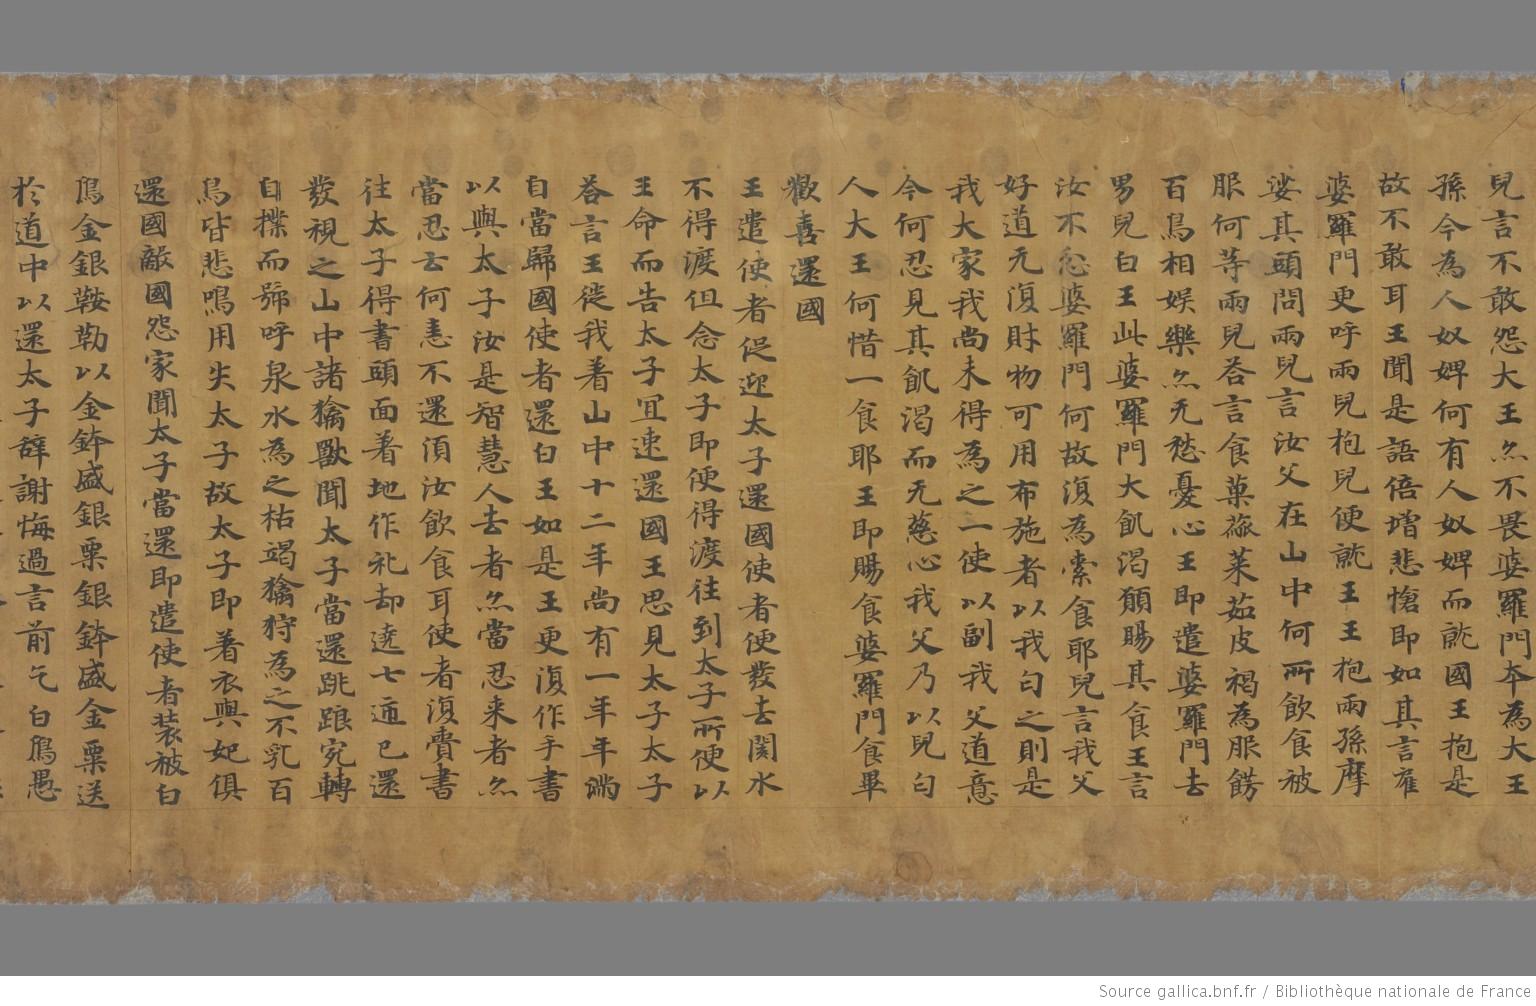 兒言不敢怨大王亦不畏婆羅門本為大王
孫今為人奴婢何有人奴婢而就國王抱是
故不敢耳王聞是語倍增悲愴即如其言雇
婆羅門更呼兩兒抱兒便就王王抱兩孫摩
娑其頭問兩兒言汝父在山中何所飲食被
服何等兩兒荅言食菓蓏菜茹皮褐為服餝
百鳥相娛樂亦无愁憂心王即遣婆羅門去
男兒白王此婆羅門大飢渴願賜其食王言
汝不忿婆羅門何故復為索食耶兒言我父
好道无復財物可用布施者以我匄之則是
我大家我尚未得為之一使以副我父道意
今何忍見其飢渴而无慈心我父乃以兒匄
人大王何惜一食耶王即賜食婆羅門食畢
歡喜還國
王遣使者促迎太子還國使者便發去閡水
不得渡但念太子即便得渡往到太子所便以
王命而告太子冝速還國王思見太子太子
荅言王徙我著山中十二年尚有一年年滿
自當歸國使者還白王如是王更復作手書
以與太子汝是智慧人去者亦當忍来者亦
當忍云何恚不還湏汝飲食耳使者復賫書
往太子得書頭面著地作礼却遶七迊已還
發視之山中諸獦獸聞太子當還跳踉宛轉
自撲而號呼泉水為之枯竭獦狩為之不乳百
鳥皆悲鳴用失太子故太子即著衣與妃俱
還國敵國怨家聞太子當還即遣使者装被白
鴈金銀鞍勒以金鉢盛銀粟銀鉢盛金粟送
扵道中以還太子辞謝悔過言前乞白鴈愚